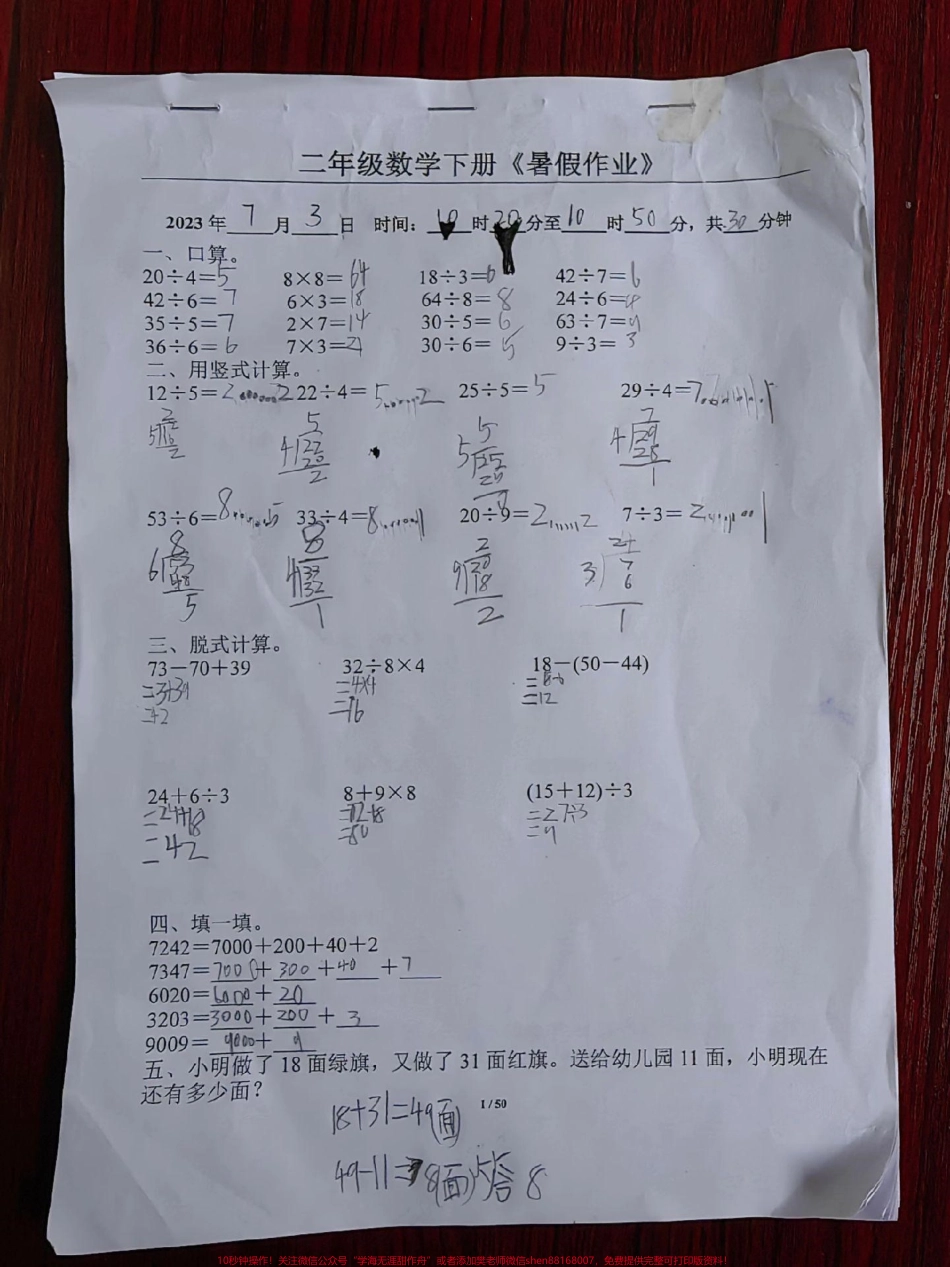 二年级数学下册《暑假作业》
2023年 7 月 3 日 时间: 10 时 20 分至 10 时 50 分，共 30 分钟
一、口算。
20÷4=5 8×8=64 18÷3=6 42÷7=6
42÷6=7 6×3=18 64÷8=8 24÷6=4
35÷5=7 2×7=14 30÷5=6 63÷7=9
36÷6=6 7×3=21 30÷6=5 9÷3=3
二、用竖式计算。
12÷5=2......2 22÷4=5......2 25÷5=5 29÷4=7......1
53÷6=8......5 33÷4=8......1 20÷9=2......2 7÷3=2......1
三、脱式计算。
73－70＋39 32÷8×4 18－(50－44)
=3+39 =4×4 =18-6
=42 =16 =12
24＋6÷3 8＋9×8 (15＋12)÷3
=24+18 =27÷3
=42 =80 =9
四、填一填。
7242＝7000＋200＋40＋2
7347＝7000＋300＋40＋7
6020＝6000＋20
3203＝3000＋200＋3
9009＝9000＋9
五、小明做了 18 面绿旗，又做了 31 面红旗。送给幼儿园 11 面，小明现在
还有多少面？
1 / 50
18+31=49(面)
49-11= 8(面) 答 8
10秒钟操作！关注微信公众号“学海无涯甜作舟”或者添加吴老师微信shen88168007，免费提供完整可打印版资料！